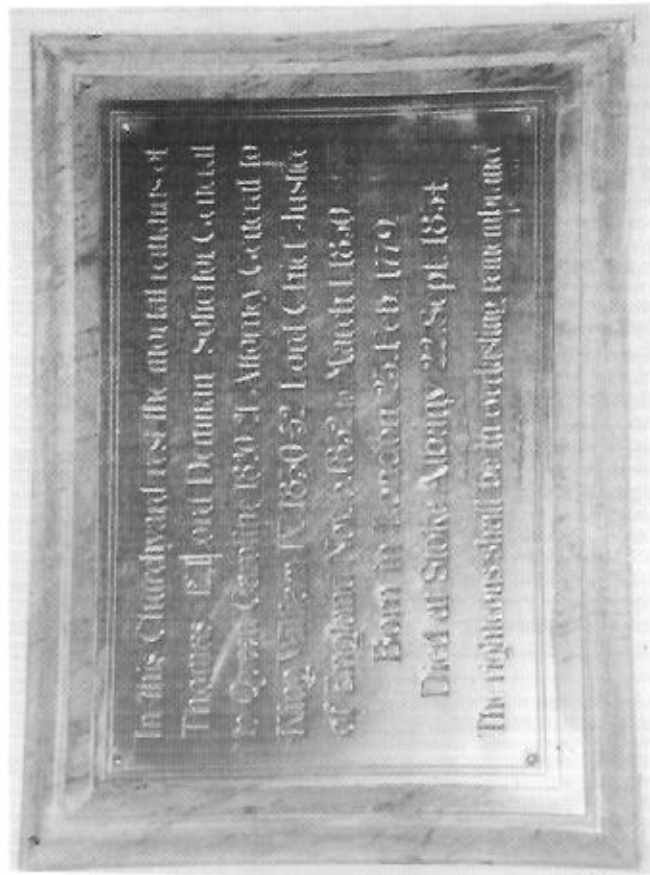 In this Churchyard rest the mortal remains of
Thomas Lord Denman Solicitor General
to Queen Caroline 1820-21 Attorney General to
King William IV 1830-32 Lord Chief Justice
of England Nov. 1832 to March 1 1850
Born in London 23. Feb. 1779
Died at Stoke Albany 22. Sept. 1854
The righteous shall be in everlasting remembrance